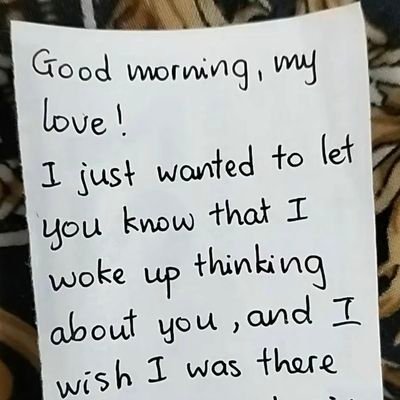 Good morning, my
love!
I just wanted to let
you know that I
woke up thinking
about you, and I
wish I was there